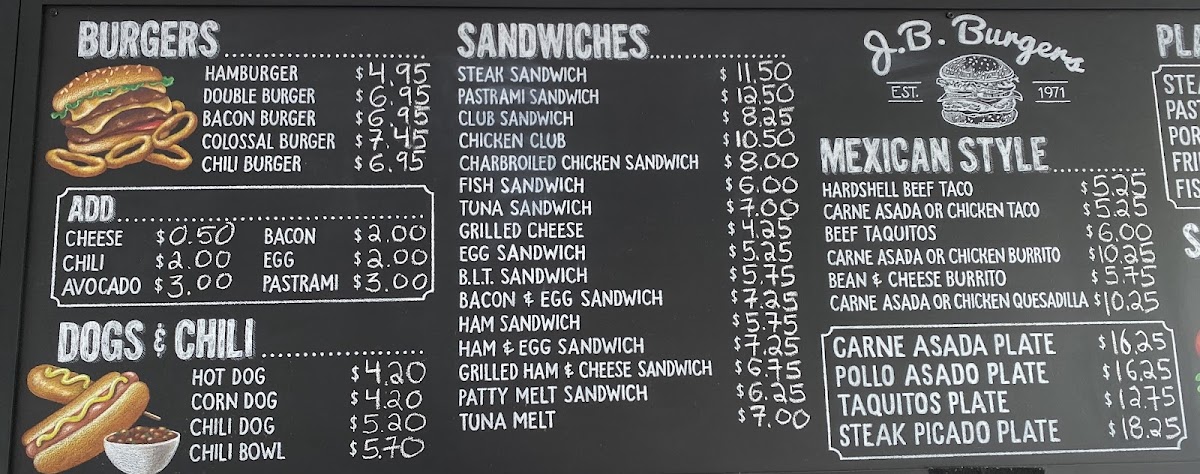 BURGERS
HAMBURGER $4.95
DOUBLE BURGER $6.95
BACON BURGER $6.95
COLOSSAL BURGER $7.45
CHILI BURGER $6.95
ADD
CHEESE $0.50 BACON $2.00
CHILI $2.00 EGG $2.00
AVOCADO $3.00 PASTRAMI $3.00
DOGS & CHILI
HOT DOG $4.20
CORN DOG $4.20
CHILI DOG $5.20
CHILI BOWL $5.70
SANDWICHES
STEAK SANDWICH $11.50
PASTRAMI SANDWICH $12.50
CLUB SANDWICH $8.25
CHICKEN CLUB $10.50
CHARBROILED CHICKEN SANDWICH $8.00
FISH SANDWICH $6.00
TUNA SANDWICH $7.00
GRILLED CHEESE $4.25
EGG SANDWICH $5.25
B.L.T. SANDWICH $5.75
BACON & EGG SANDWICH $7.25
HAM SANDWICH $5.75
HAM & EGG SANDWICH $7.25
GRILLED HAM & CHEESE SANDWICH $6.75
PATTY MELT SANDWICH $6.25
TUNA MELT $7.00
J.B. Burgers
EST. 1971
MEXICAN STYLE
HARDSHELL BEEF TACO $5.25
CARNE ASADA OR CHICKEN TACO $5.25
BEEF TAQUITOS $6.00
CARNE ASADA OR CHICKEN BURRITO $10.25
BEAN & CHEESE BURRITO $5.75
CARNE ASADA OR CHICKEN QUESADILLA $10.25
CARNE ASADA PLATE $16.25
POLLO ASADO PLATE $16.25
TAQUITOS PLATE $12.75
STEAK PICADO PLATE $18.25
PLA
STEA
PAS
POR
FRI
FIS
S